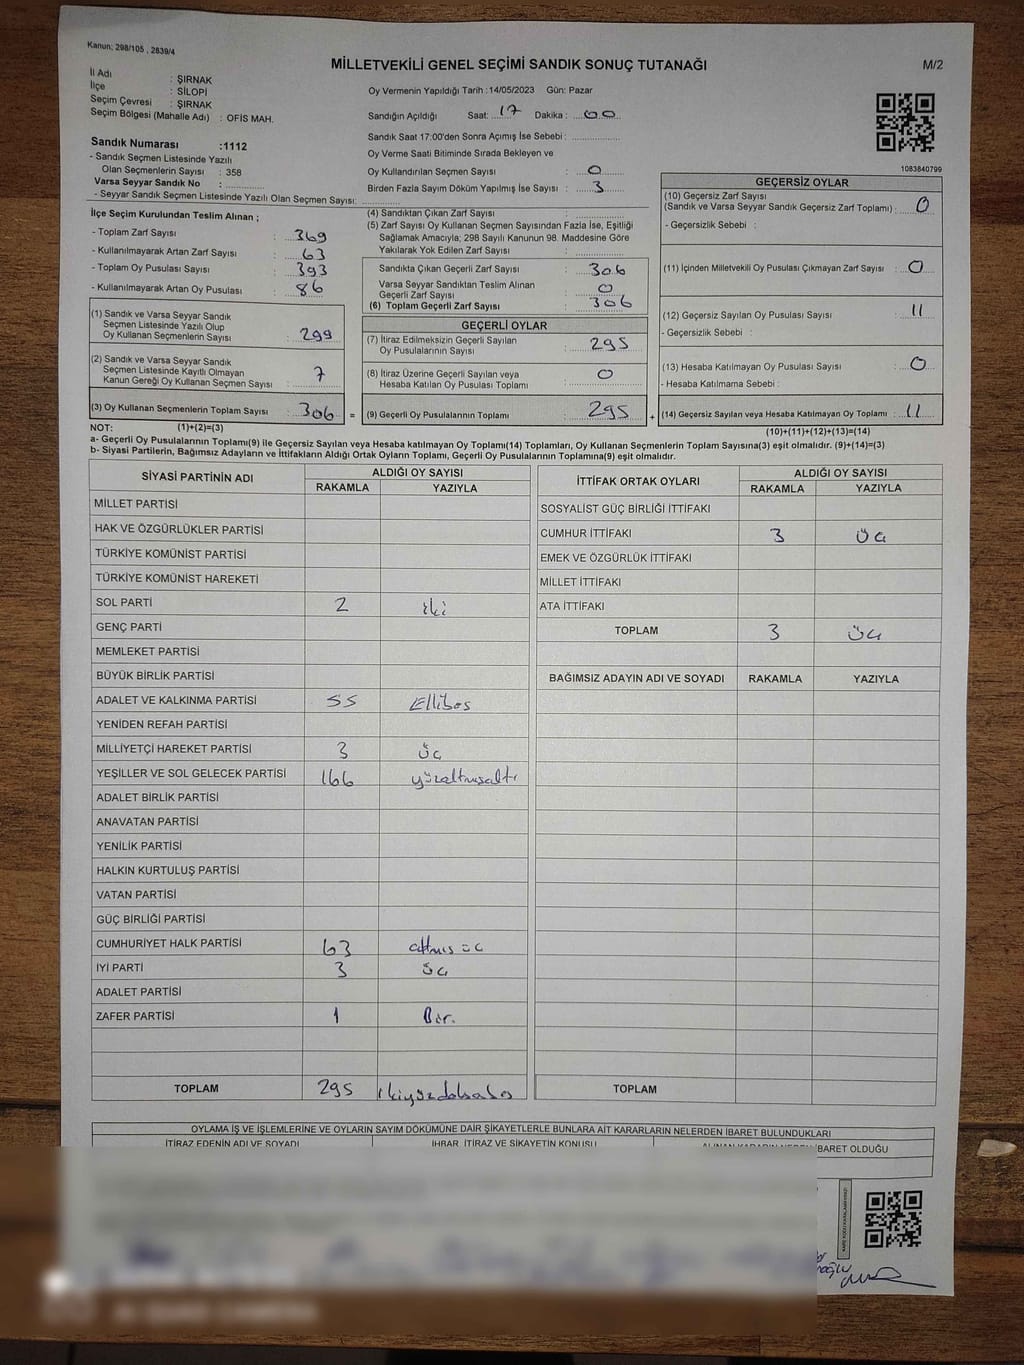 Kanun; 298/105 , 2839/4
MİLLETVEKİLİ GENEL SEÇİMİ SANDIK SONUÇ TUTANAĞI
M/2
İl Adı : ŞIRNAK
İlçe : SİLOPİ
Seçim Çevresi : ŞIRNAK
Seçim Bölgesi (Mahalle Adı) : OFİS MAH.
Oy Vermenin Yapıldığı Tarih :14/05/2023 Gün: Pazar
Sandığın Açıldığı Saat: 17 Dakika : 00
Sandık Saat 17:00'den Sonra Açımış İse Sebebi :
Oy Verme Saati Bitiminde Sırada Bekleyen ve
Oy Kullandırılan Seçmen Sayısı : 0
Birden Fazla Sayım Döküm Yapılmış İse Sayısı : 3
1083840799
Sandık Numarası :1112
- Sandık Seçmen Listesinde Yazılı
Olan Seçmenlerin Sayısı : 358
Varsa Seyyar Sandık No :
- Seyyar Sandık Seçmen Listesinde Yazılı Olan Seçmen Sayısı:
İlçe Seçim Kurulundan Teslim Alınan ;
- Toplam Zarf Sayısı : 369
- Kullanılmayarak Artan Zarf Sayısı : 63
- Toplam Oy Pusulası Sayısı : 393
- Kullanılmayarak Artan Oy Pusulası : 86
(1) Sandık ve Varsa Seyyar Sandık
Seçmen Listesinde Yazılı Olup
Oy Kullanan Seçmenlerin Sayısı : 299
(2) Sandık ve Varsa Seyyar Sandık
Seçmen Listesinde Kayıtlı Olmayan
Kanun Gereği Oy Kullanan Seçmen Sayısı : 7
(3) Oy Kullanan Seçmenlerin Toplam Sayısı : 306 =
(4) Sandıktan Çıkan Zarf Sayısı :
(5) Zarf Sayısı Oy Kullanan Seçmen Sayısından Fazla İse, Eşitliği
Sağlamak Amacıyla; 298 Sayılı Kanunun 98. Maddesine Göre
Yakılarak Yok Edilen Zarf Sayısı :
Sandıkta Çıkan Geçerli Zarf Sayısı : 306
Varsa Seyyar Sandıktan Teslim Alınan
Geçerli Zarf Sayısı : 0
(6) Toplam Geçerli Zarf Sayısı : 306
GEÇERLİ OYLAR
(7) İtiraz Edilmeksizin Geçerli Sayılan
Oy Pusulalarının Sayısı : 295
(8) İtiraz Üzerine Geçerli Sayılan veya
Hesaba Katılan Oy Pusulası Toplamı : 0
(9) Geçerli Oy Pusulalarının Toplamı : 295 +
GEÇERSİZ OYLAR
(10) Geçersiz Zarf Sayısı
(Sandık ve Varsa Seyyar Sandık Geçersiz Zarf Toplamı) : 0
- Geçersizlik Sebebi :
(11) İçinden Milletvekili Oy Pusulası Çıkmayan Zarf Sayısı : 0
(12) Geçersiz Sayılan Oy Pusulası Sayısı : 11
- Geçersizlik Sebebi :
(13) Hesaba Katılmayan Oy Pusulası Sayısı : 0
- Hesaba Katılmama Sebebi :
(14) Geçersiz Sayılan veya Hesaba Katılmayan Oy Toplamı : 11
NOT: (1)+(2)=(3)
(10)+(11)+(12)+(13)=(14)
a- Geçerli Oy Pusulalarının Toplamı(9) ile Geçersiz Sayılan veya Hesaba katılmayan Oy Toplamı(14) Toplamları, Oy Kullanan Seçmenlerin Toplam Sayısına(3) eşit olmalıdır. (9)+(14)=(3)
b- Siyasi Partilerin, Bağımsız Adayların ve İttifakların Aldığı Ortak Oyların Toplamı, Geçerli Oy Pusulalarının Toplamına(9) eşit olmalıdır.
SİYASİ PARTİNİN ADI
ALDIĞI OY SAYISI
RAKAMLA YAZIYLA
MİLLET PARTİSİ
HAK VE ÖZGÜRLÜKLER PARTİSİ
TÜRKİYE KOMÜNİST PARTİSİ
TÜRKİYE KOMÜNİST HAREKETİ
SOL PARTİ 2 iki
GENÇ PARTİ
MEMLEKET PARTİSİ
BÜYÜK BİRLİK PARTİSİ
ADALET VE KALKINMA PARTİSİ 55 Ellibeş
YENİDEN REFAH PARTİSİ
MİLLİYETÇİ HAREKET PARTİSİ 3 üç
YEŞİLLER VE SOL GELECEK PARTİSİ 166 yüzaltmışaltı
ADALET BİRLİK PARTİSİ
ANAVATAN PARTİSİ
YENİLİK PARTİSİ
HALKIN KURTULUŞ PARTİSİ
VATAN PARTİSİ
GÜÇ BİRLİĞİ PARTİSİ
CUMHURİYET HALK PARTİSİ 63 altmış üç
İYİ PARTİ 3 üç
ADALET PARTİSİ
ZAFER PARTİSİ 1 Bir.
TOPLAM 295
İTTİFAK ORTAK OYLARI
ALDIĞI OY SAYISI
RAKAMLA YAZIYLA
SOSYALİST GÜÇ BİRLİĞİ İTTİFAKI
CUMHUR İTTİFAKI 3 üç
EMEK VE ÖZGÜRLÜK İTTİFAKI
MİLLET İTTİFAKI
ATA İTTİFAKI
TOPLAM 3 üç
BAĞIMSIZ ADAYIN ADI VE SOYADI RAKAMLA YAZIYLA
TOPLAM
OYLAMA İŞ VE İŞLEMLERİNE VE OYLARIN SAYIM DÖKÜMÜNE DAİR ŞİKAYETLERLE BUNLARA AİT KARARLARIN NELERDEN İBARET BULUNDUKLARI
İTİRAZ EDENİN ADI VE SOYADI
İHBAR, İTİRAZ VE ŞİKAYETİN KONUSU
ALINAN KARARIN NEDEN İBARET OLDUĞU